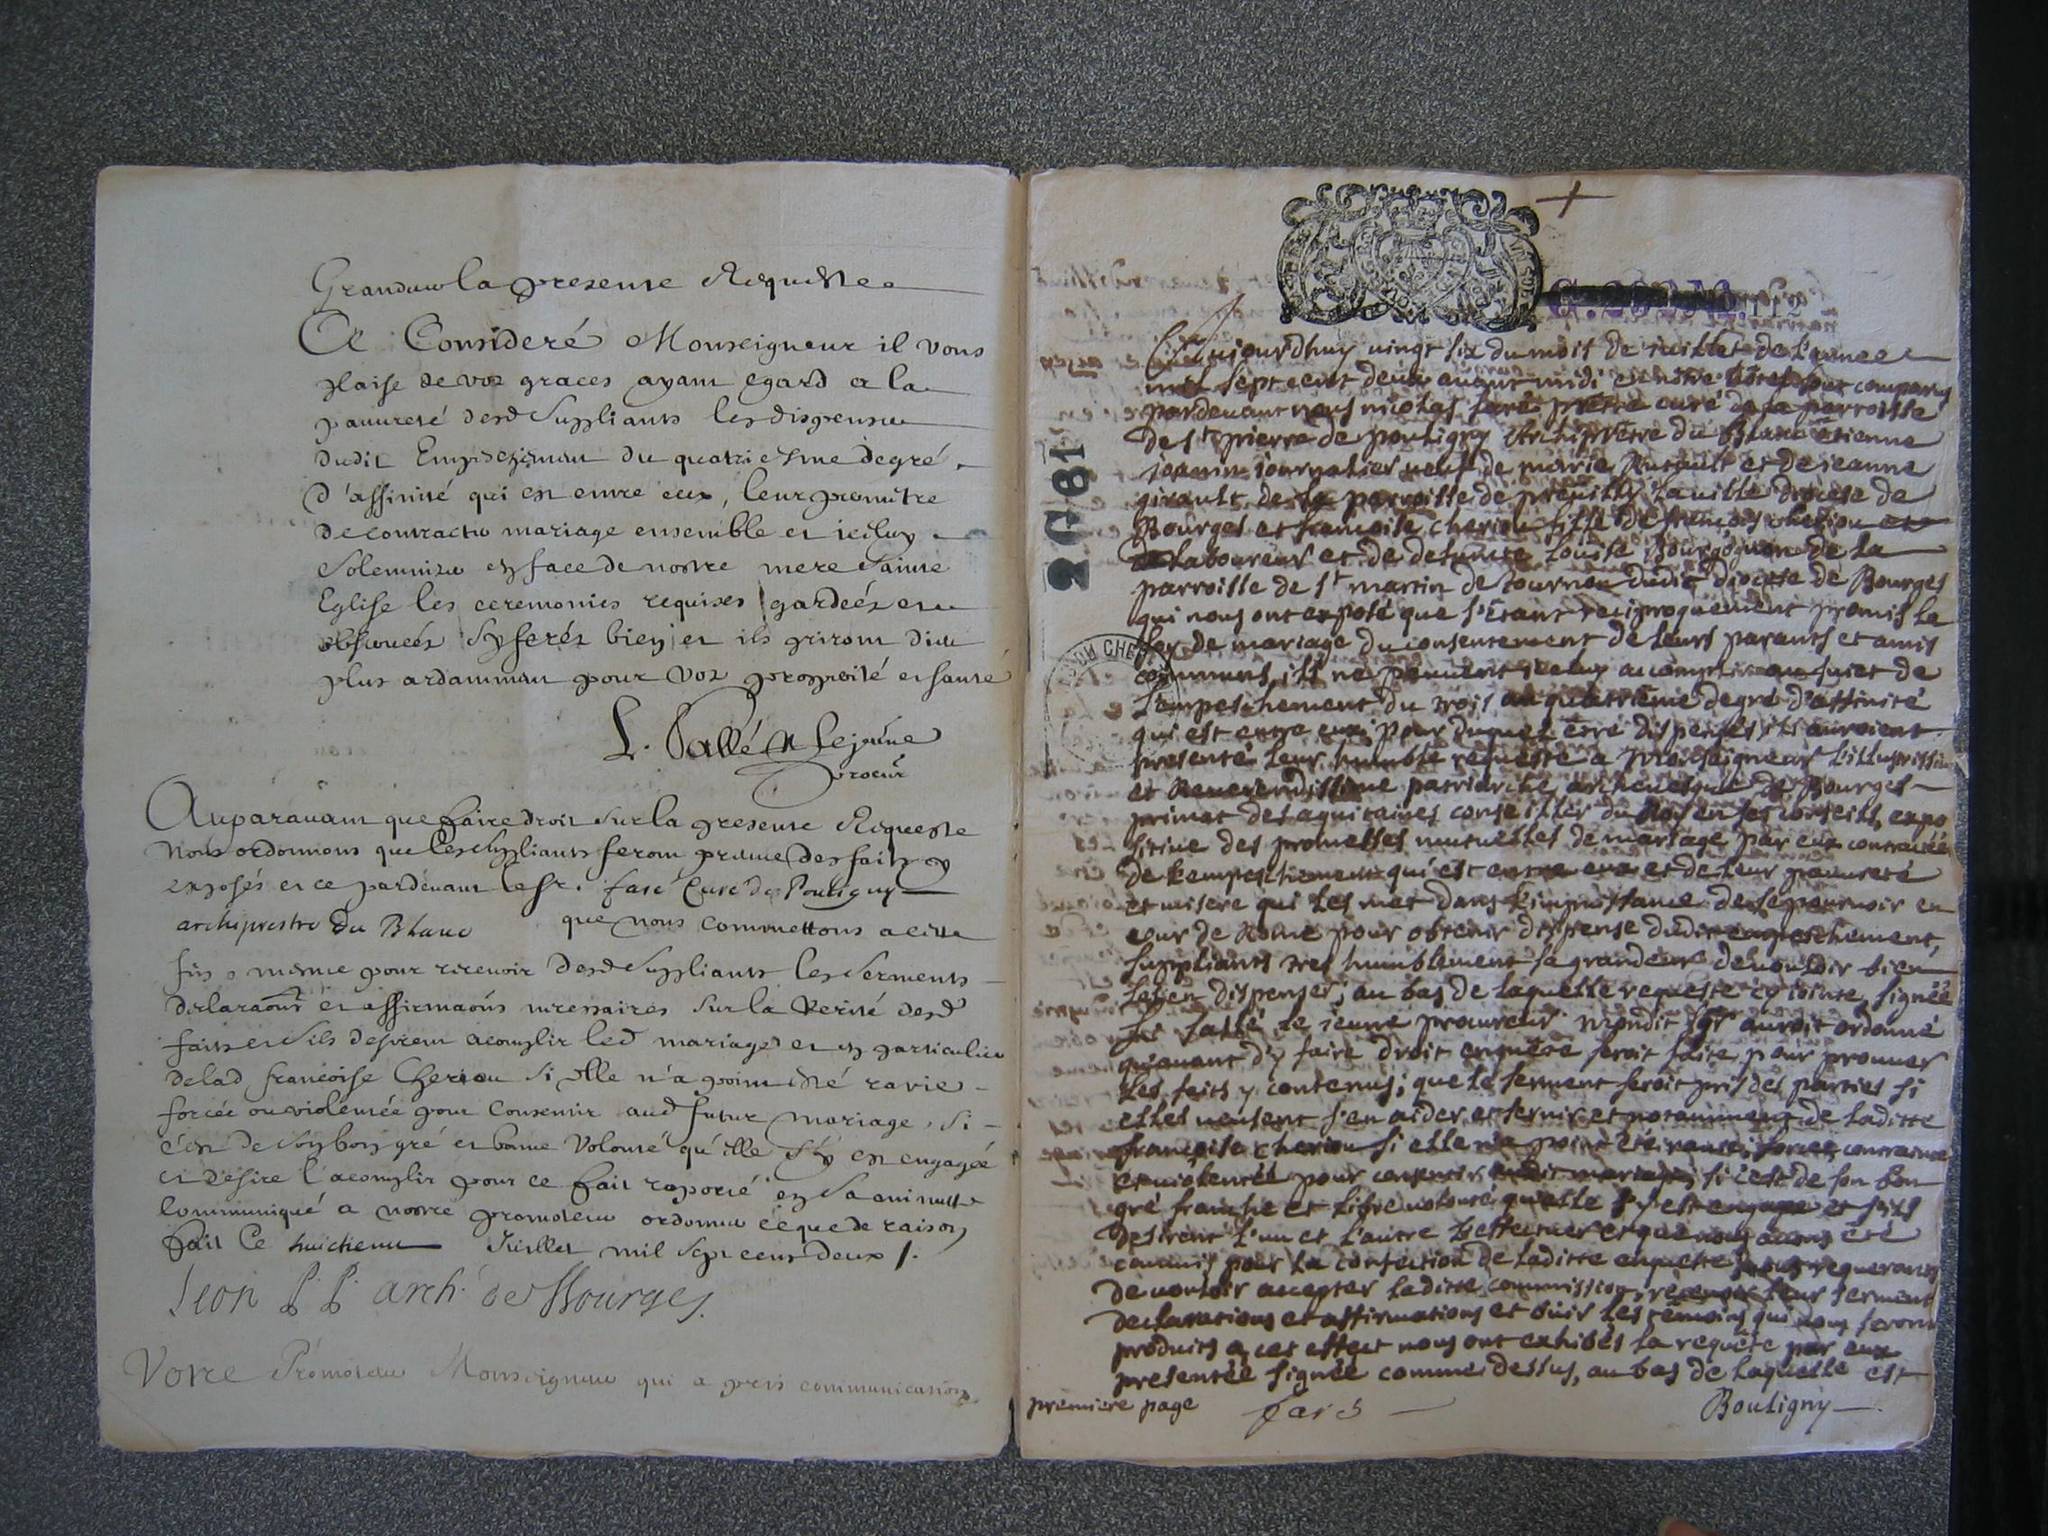 Grandeur la presente Requeste
Ce Consideré Monseigneur il vous
plaise de voz graces ayant egard a la
pauvreté desd suppliants les dispenser
dudit Empeschement du quatriesme degré
d'affinité qui est entre eux, leur permettre
de contracter mariage ensemble et iceluy
solemnizer en face de nostre mere sainte
Eglise les ceremonies requises gardeés et
observeés sy ferés bien et ils priront dieu
plus ardamment pour voz prosperité et santé
L. Vallé Le jeune
procur
Auparavant que faire droit sur la presente Requeste
nous ordonnons que les suppliants feront preuve des faits y
exposés et ce pardevant le sr. faré Curé de Pouligny
archiprestre du Blanc que nous commettons a cette
fin, mesme pour recevoir desd suppliants les serments
declaraons et affirmaons necessaires sur la verité desd
faits et s'ils desirent acomplir led mariage et en particulier
de lad francoise Cheriou si elle n'a point esté ravie
forcée ou violentée pour consentir aud futur mariage, si
c'est de son bon gré et bonne volonté qu'elle s'y est engagée
et desire l'acomplir pour ce fait raporté en sa minutte
communiqué a nostre promoteur ordonner ce que de raison
fait Ce huictieme Juillet mil sept cent deux /.
Leon P. P. arch. de Bourges.
Votre Promoteur Monseigneur qui a pris communication
G. 112
2 G 81
DU CHER
Ce jourdhuy vingt six du mois de juillet de l'annee
mil sept cent deux avant midi en notre hotel sont comparus
pardevant nous nicolas faré pretre curé de la parroisse
de st pierre de pouligny Archipretre du Blanc etienne
journalier veuf de marie et de jeanne
girault de la parroisse de preuilly la ville diocese de
Bourges et francoise cheriou fille de francois cheriou
laboureur et de defunte louise Bourgognon de la
parroisse de st martin de tournon dudit diocese de Bourges
qui nous ont exposé que s'etant reciproquement promis la
foy de mariage du consentement de leurs parants et amis
communs, ils ne peuvent iceluy accomplir au sujet de
l'empeschement du trois au quatrieme degré d'affinité
qui est entre eux; pour duquel etre dispensés ils auroient
presenté leur humble requeste a Monseigneur l'illustrissime
et Reverendissime patriarche archevesque de Bourges
primat des aquitaines conseiller du Roy en ses conseils, expo
sitive des promesses mutuelles de mariage par eux contractées
de l'empeschement qui est entre eux et de leur pauvreté
et misere qui les met dans l'impuissance de se pourvoir en
cour de Rome pour obtenir dispense dudit empeschement
suppliants tres humblement sa grandeur de vouloir bien
les en dispenser; au bas de laquelle requeste cy jointe, signée
Vallé le jeune procureur mondit sgr auroit ordonné
qu'avant d'y faire droit enquete seroit faite pour prouver
les faits y contenus; que le serment seroit pris des parties si
elles veulent s'en aider et servir et notamment de laditte
francoise cheriou si elle n'a point eté ravie, forcée, contrainte
et violentée pour consentir audit mariage, si c'est de son bon
gré franche et libre volonté qu'elle s'y est engagée et s'ils
desirent l'un et l'autre l'effectuer et que nous avons eté
commis pour la confection de laditte enqueste, nous requerants
de vouloir accepter laditte commission, recevoir leur serment
declarations et affirmations et ouir les témoins qui nous seront
produits a cet effect nous ont exhibés la requéte par eux
presentée signée comme dessus, au bas de laquelle est
premiere page faré Pouligny